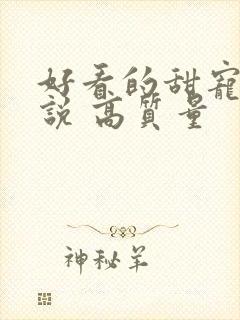 好看的甜宠
說 高質量
神秘羊